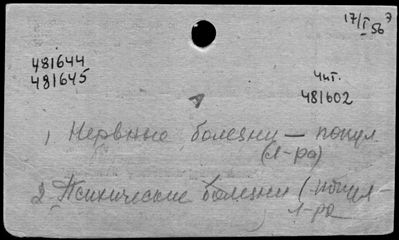 17/I 56
481644
481645
Чит.
481602
А
1 Нервные болезни — попул
(л-ра)
2 Психические болезни (попул-
л-ра